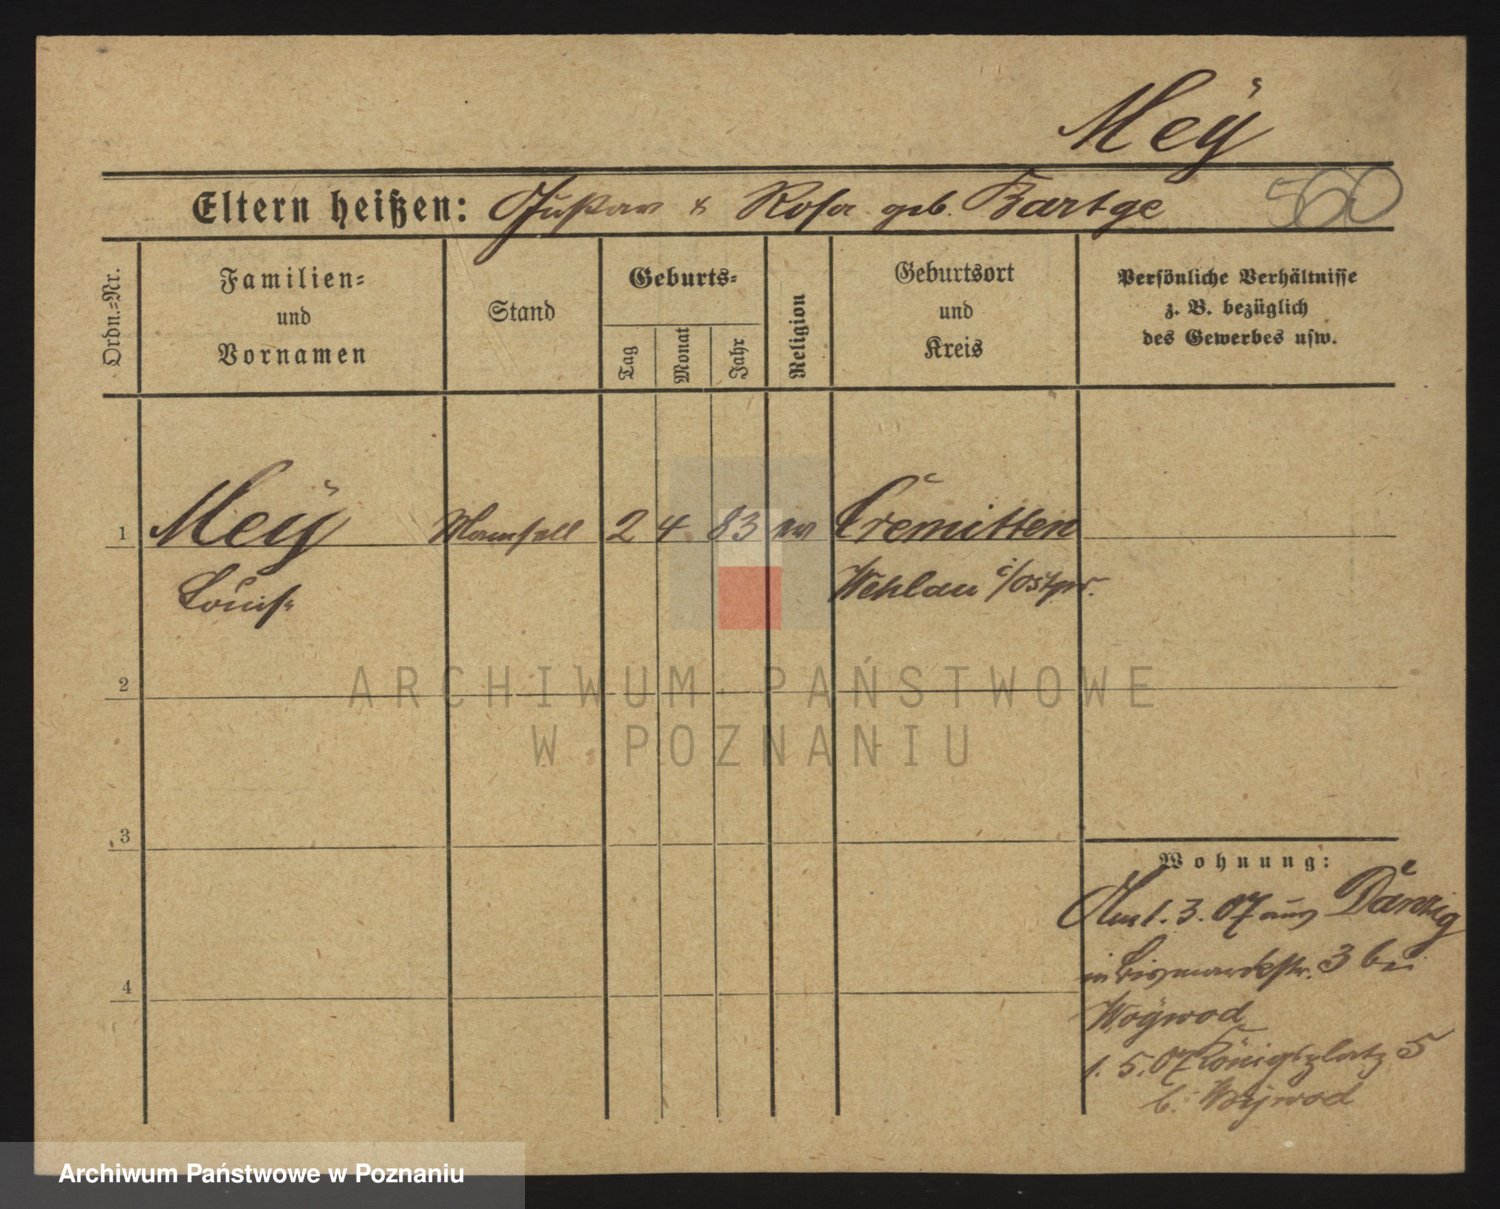 Meÿ
Eltern heißen: Gustav & Rosa geb. Bartge
560
Ordn.=Nr.
Familien=
und
Vornamen
Stand
Geburts=
Tag
Monat
Jahr
Religion
Geburtsort
und
Kreis
Persönliche Verhältnisse
z. B. bezüglich
des Gewerbes usw.
1 Meÿ Mamsell 2 4 83 ev Cremitten
Louise Wehlau i/Ostpr.
2
3
4
Wohnung:
Am 1. 3. 07 aus Danzig
in Bismarckstr. 3 bei
Woÿwod
1. 5. 07 Königsplatz 5
b. Woÿwod
ARCHIWUM PAŃSTWOWE
W POZNANIU
Archiwum Państwowe w Poznaniu